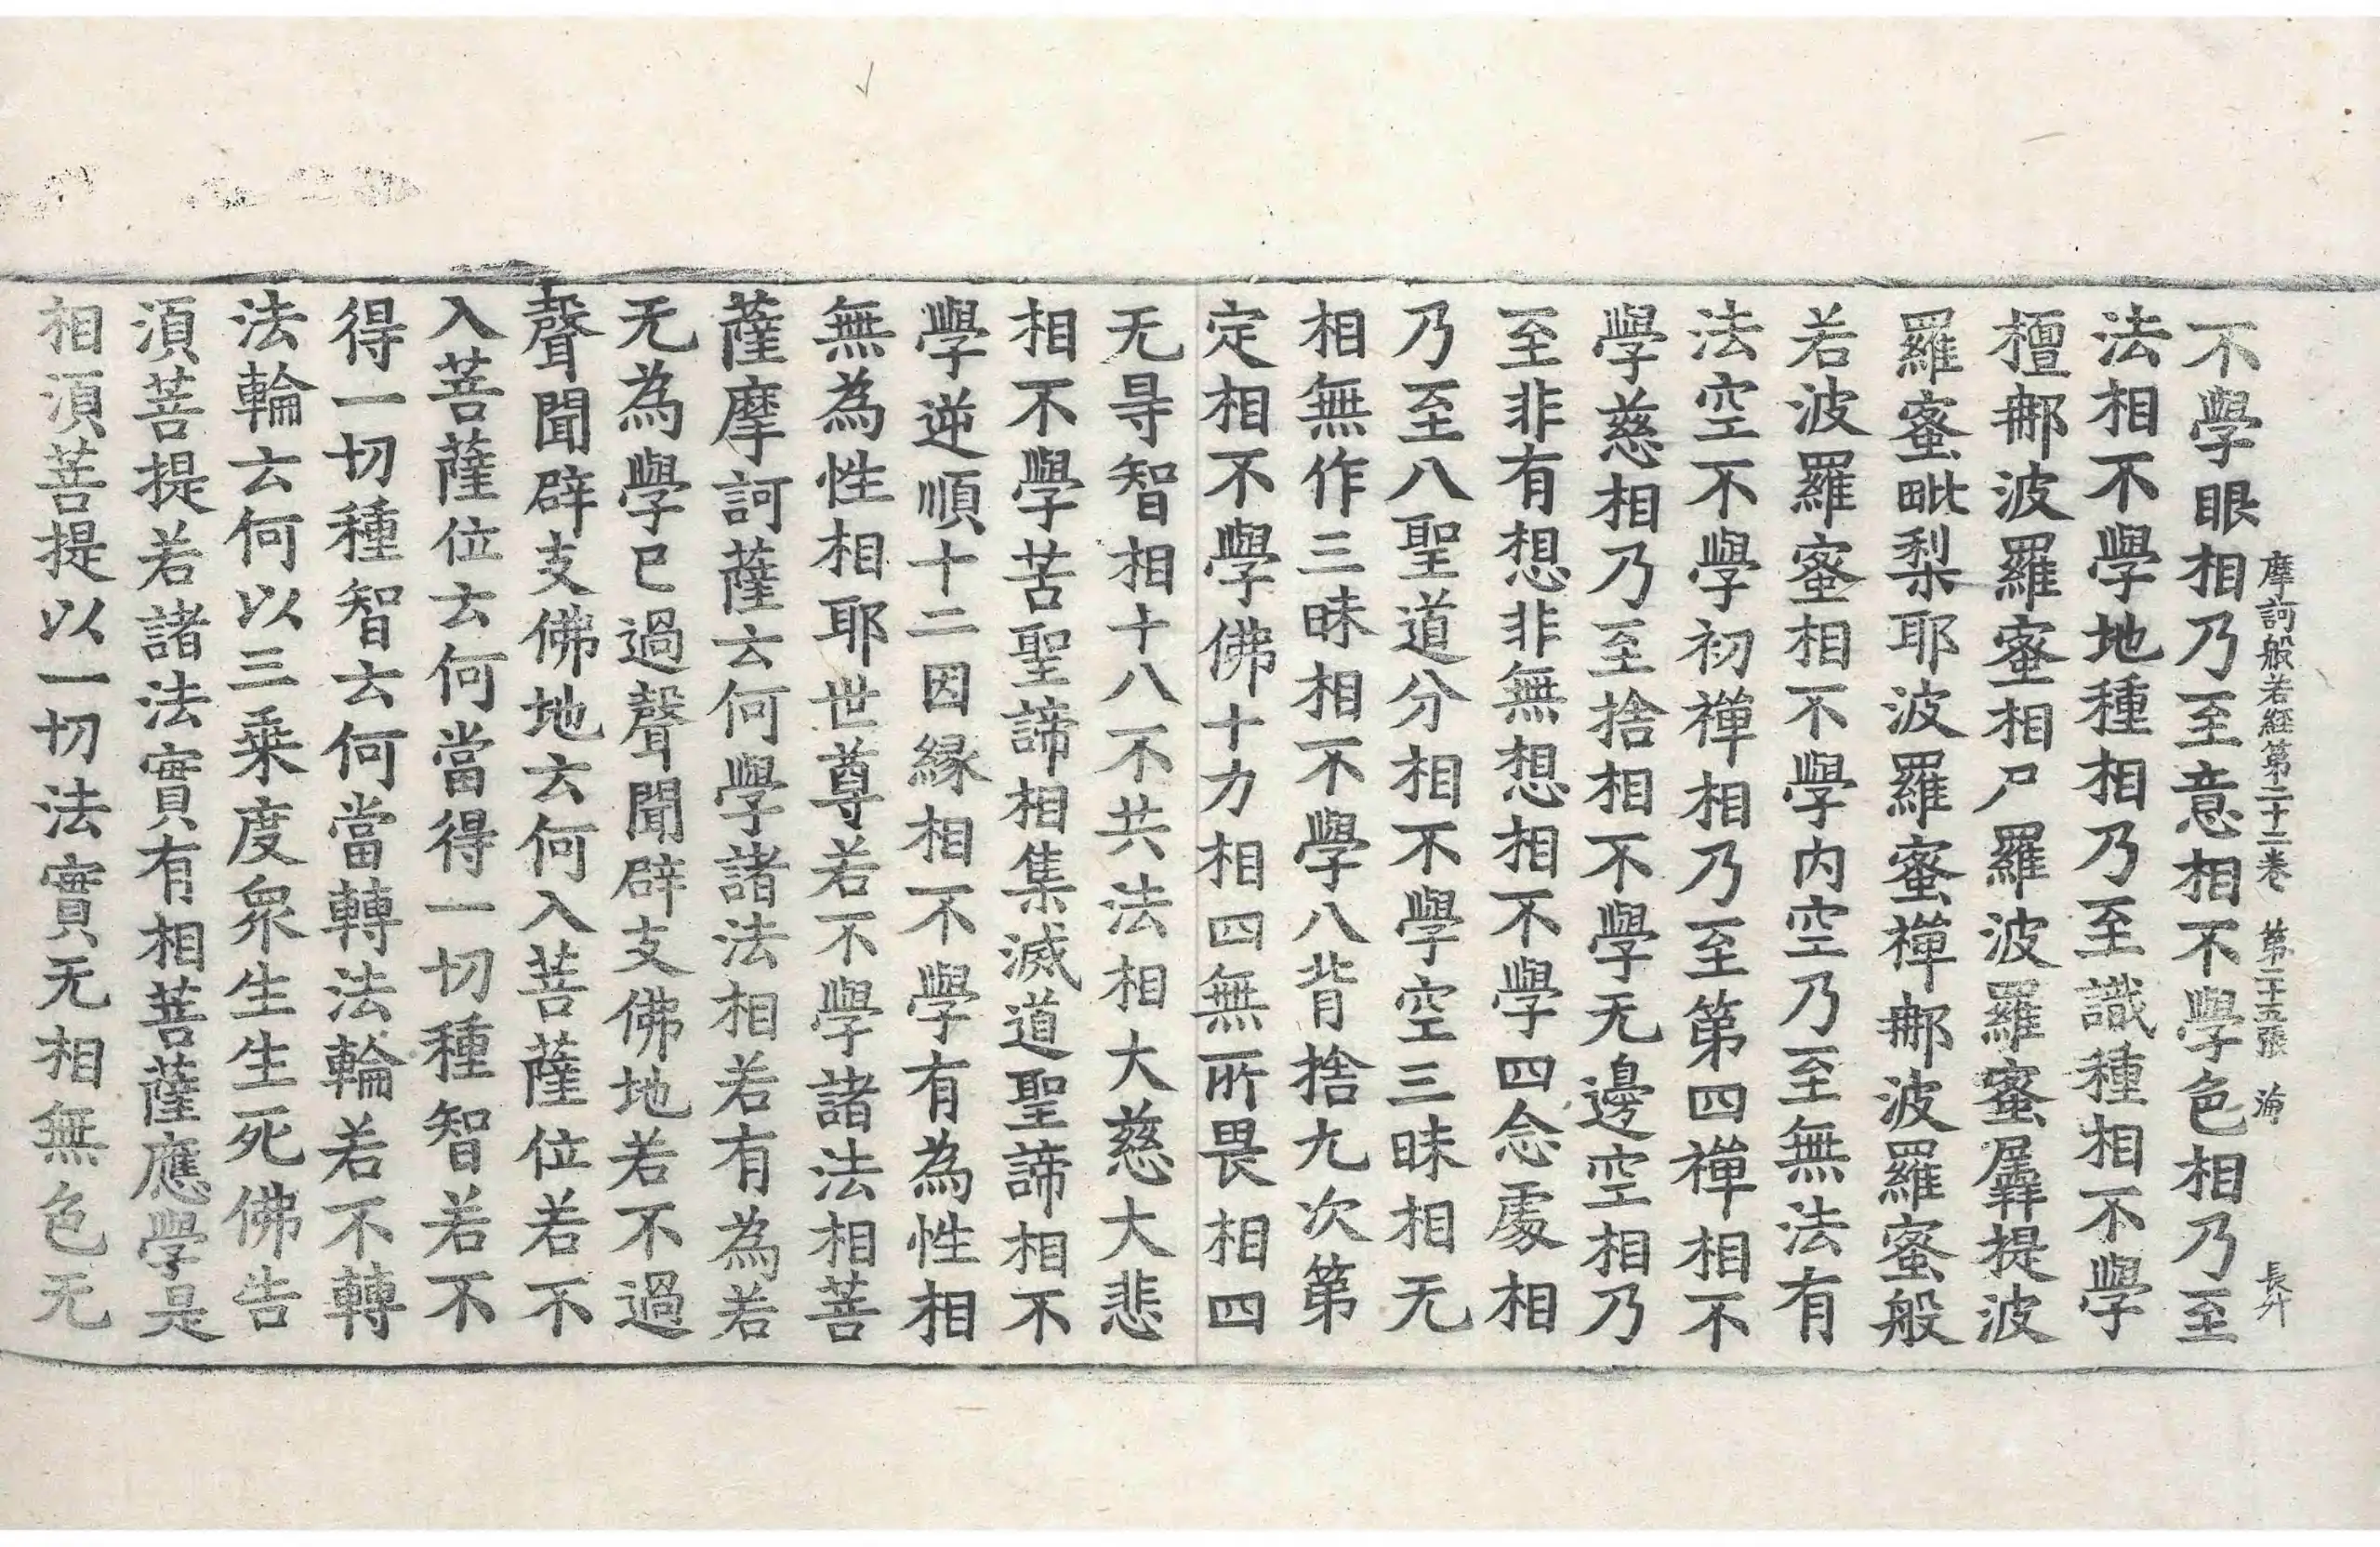 摩訶般若經第二十二卷 第二十五張 海 長升
不學眼相乃至意相不學色相乃至
法相不學地種相乃至識種相不學
檀那波羅蜜相尸羅波羅蜜羼提波
羅蜜毗梨耶波羅蜜禪那波羅蜜般
若波羅蜜相不學內空乃至無法有
法空不學初禪相乃至第四禪相不
學慈相乃至捨相不學无邊空相乃
至非有想非無想相不學四念處相
乃至八聖道分相不學空三昧相无
相無作三昧相不學八背捨九次第
定相不學佛十力相四無所畏相四
无㝵智相十八不共法相大慈大悲
相不學苦聖諦相集滅道聖諦相不
學逆順十二因緣相不學有為性相
無為性相耶世尊若不學諸法相菩
薩摩訶薩云何學諸法相若有為若
无為學已過聲聞辟支佛地若不過
聲聞辟支佛地云何入菩薩位若不
入菩薩位云何當得一切種智若不
得一切種智云何當轉法輪若不轉
法輪云何以三乘度眾生生死佛告
須菩提若諸法實有相菩薩應學是
相須菩提以一切法實无相無色无